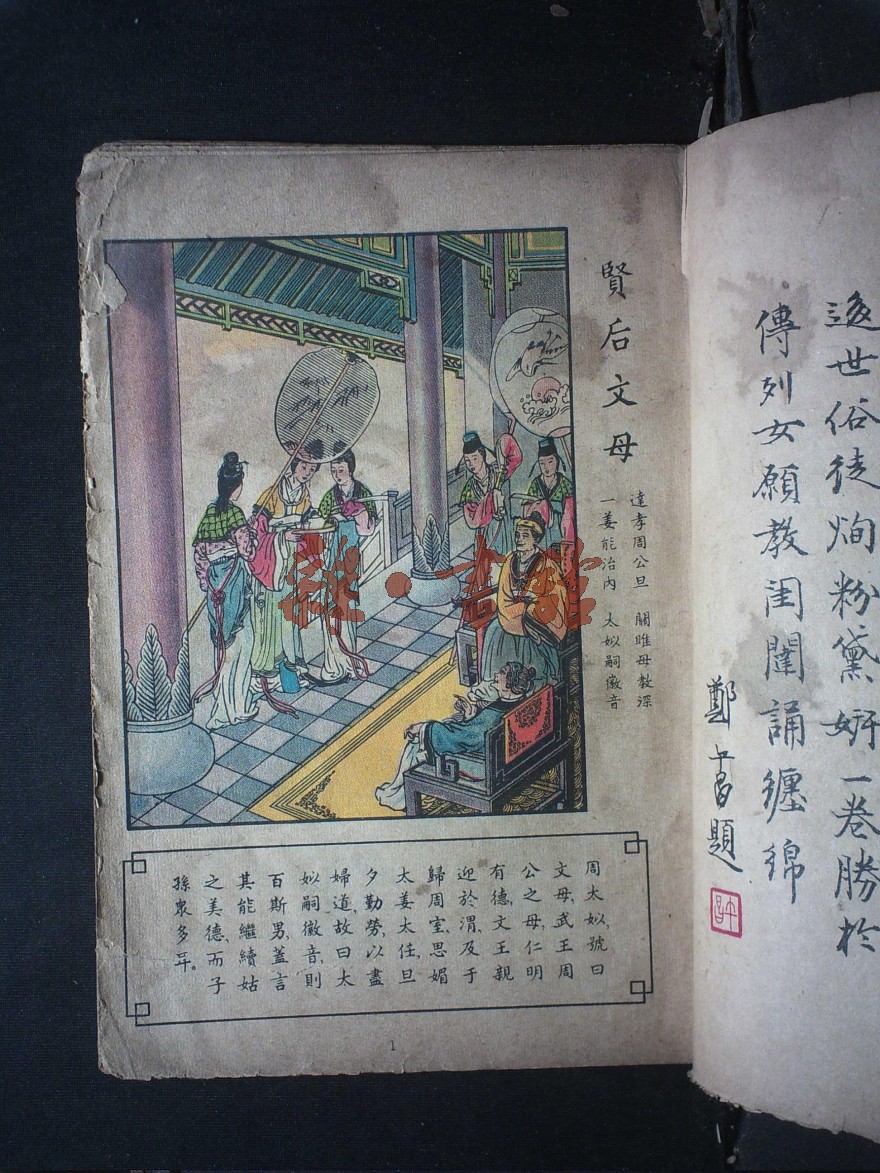 世俗徒粉黛妍一卷勝於
傳列女願教閨闥誦纏綿
鄭午昌題
賢后文母
達孝周公旦 關雎母教深
一姜能治內 太姒嗣徽音
周太姒,號曰
文母,武王周
公之母,仁明
有德,文王親
迎於渭,及于
歸周室,思媚
太姜太任,旦
夕勤勞,以盡
婦道,故曰太
姒嗣徽音,則
百斯男,蓋言
其能繼續姑
之美德,而子
孫衆多耳。
1
雜·書館